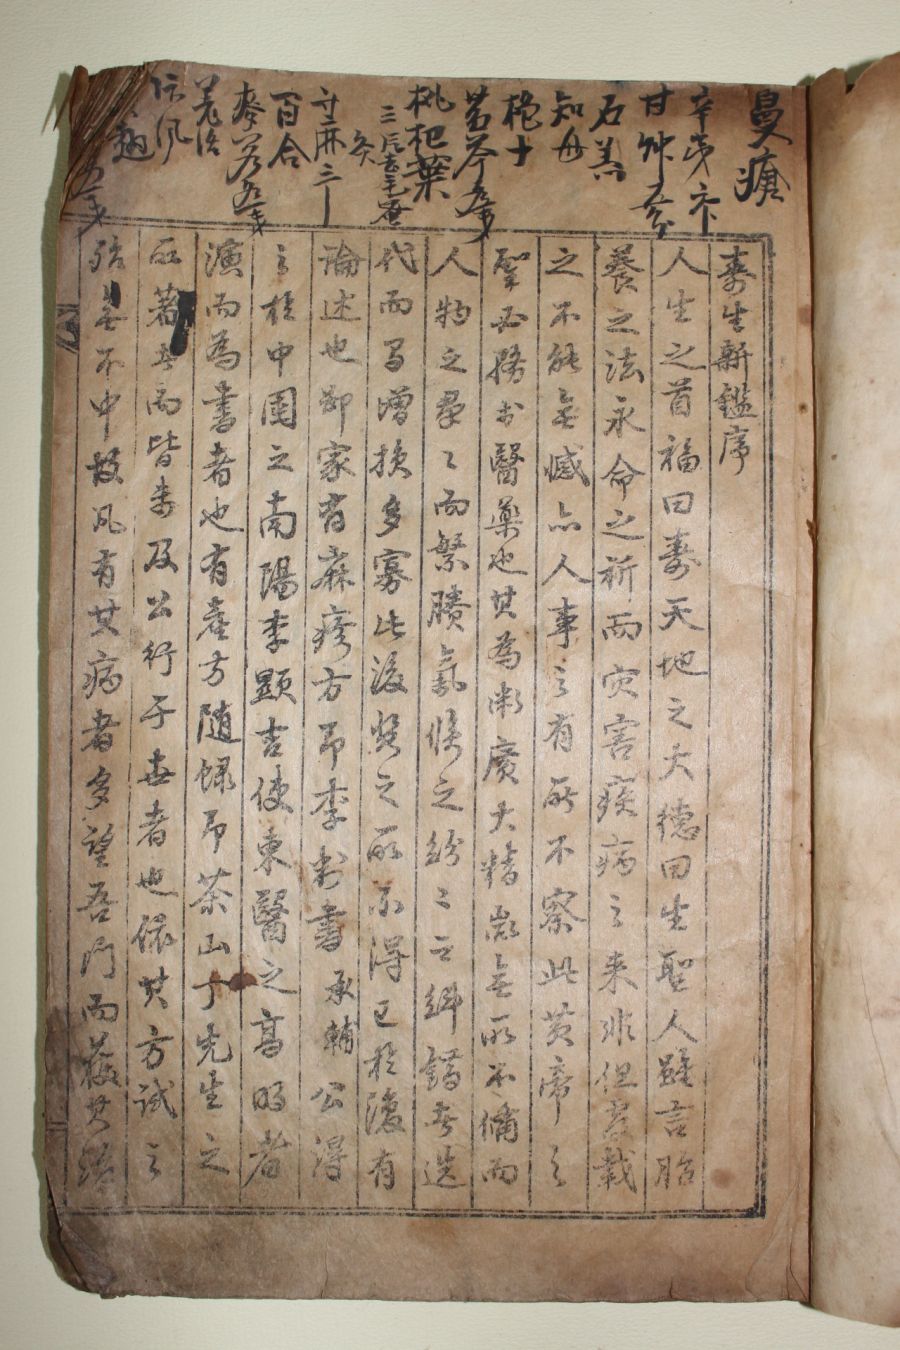 辛夷
甘艸
石羔
知母
黃芩
枇杷葉
升麻
百合
麥芩
羌活
防風
壽生新鑑序
人生之首福曰壽天地之大德曰生聖人雖言胎
養之法永命之祈而灾害疾病之来非但載
之不能無憾亦人事之有所不察此黃帝之
聖必務於醫藥也其為術廣大精微無所不備而
人物之羣〻而繁賾氣候之紛〻之糾錯者迭
代而易增損多寡此後賢之所不得已於復有
論述也鄙家有麻疹方卽李判書承輔公得
之於中國之南陽李顯吉使東醫之高明者
演而為書者也有産方隨錄卽茶山丁先生之
所著者而皆未及公行于世者也依其方試之
殆無不中故凡有其病者多望吾門而